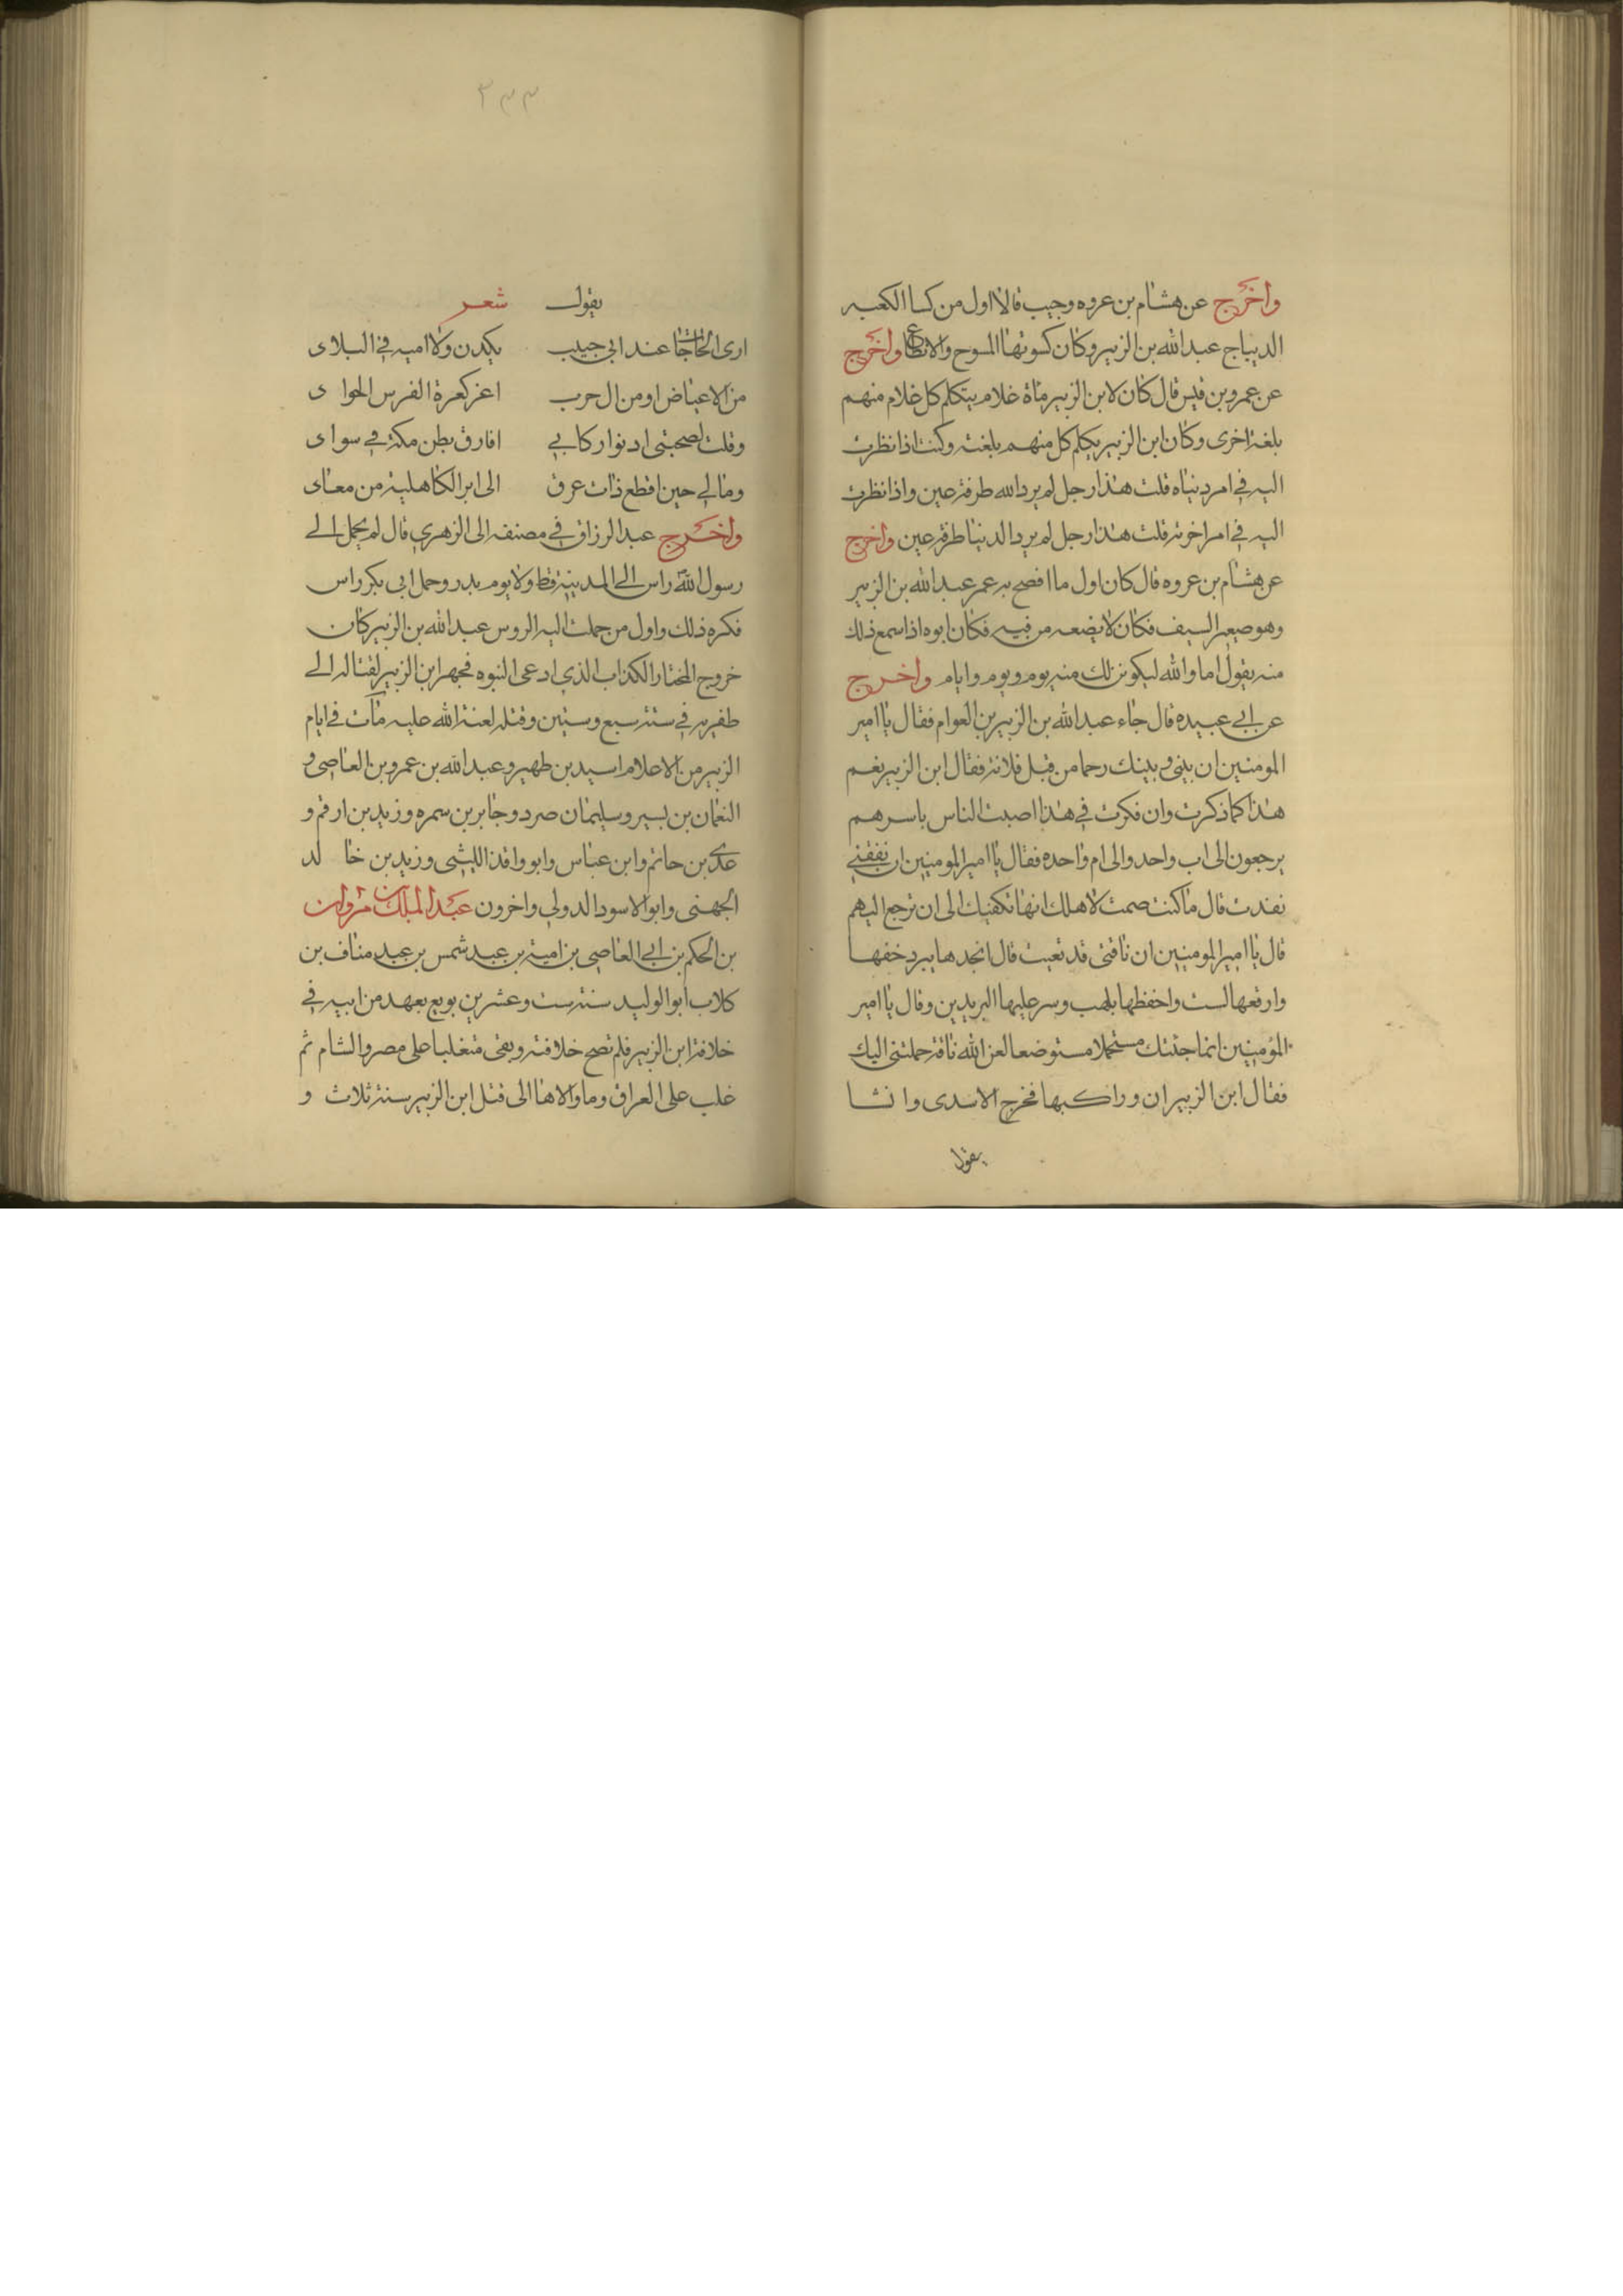 واخرج عن هشام بن عروه وجيب قالا اول من كسا الكعبه
الديباج عبد الله بن الزبير وكان كسوتها المسوح والانطاع واخرج
عن عمرو بن قيس قال كان لابن الزبير ماة غلام يتكلم كل غلام منهم
بلغة اخرى وكان ابن الزبير يكلم كل منهم بلغته وكنت اذا نظرت
اليه في امر دنياه قلت هذا رجل لم يرد الله طرفة عين واذا نظرت
اليه في امر اخرته قلت هذا رجل لم يرد الدنيا طرفة عين واخرج
عن هشام بن عروه قال كان اول ما افصح به عمر عبد الله بن الزبير
وهو صيعر السيف فكان لا يضعه من فيه فكان ابوه اذا سمع ذلك
منه يقول اما والله ليكونن لك منه يوم ويوم وايام واخرج
عن ابي عبيده قال جاء عبد الله بن الزبير بن العوام فقال يا امير
المومنين ان بيني وبينك رحما من قبل فلانة فقال ابن الزبير نعم
هذا كما ذكرت وان فكرت في هذا اصبت الناس باسرهم
يرجعون الى اب واحد والى ام واحده فقال يا امير المومنين ان نفقتي
نفدت قال ما كنت ضمنت لاهلك انها تكفيك الى ان ترجع اليهم
قال يا امير المومنين ان ناقتى قد تعبت قال انجدها يبرد خفها
وارقعها لست واخفظها بلهب وسر عليها البريدين وقال يا امير
المؤمنين انما جئتك مستحملا مستوضعا لعن الله ناقة حملتني اليك
فقال ابن الزبير ان وراكبها فخرج الاسدى وانشا
يقول
٣٣٣
يقول شعر
ارى الحاجات عند ابي حبيب يكدن ولا اميه في البلاى
من الاعياض او من ال حرب اغر كعرة الفرس الجواى
وقلت لصحبتى ادنوا ركابي افارق بطن مكة في سواى
ومالي حين اقطع ذات عرق الى ابن الكاهلية من معاى
واخرج عبد الرزاق في مصنفه الى الزهري قال لم يحمل الي
رسول الله راس الي المدينة قط ولا يوم بدر وحمل ابي بكر راس
فكره ذلك واول من حملت اليه الروس عبد الله بن الزبير كان
خروج المختار الكذاب الذي ادعى النبوه فجهر ابن الزبير لقتاله الي
طفر به في سنة سبع وستين وقتله لعنة الله عليه مات في ايام
الزبير من الاعلام اسيد بن ظهير وعبد الله بن عمرو بن العاصي و
النعمان بن بسير وسليمان صرد وجابر بن سمره وزيد بن ارقم و
عدي بن حاتم وابن عباس وابو واقد الليثى وزيد بن خالد
الجهنى وابو الاسود الدولي واخرون عبد الملك بن مروان
بن الحكم بن ابي العاصي بن امية بن عبد شمس بن عبد مناف بن
كلاب ابو الوليد سنة ست وعشرين بويع بعهد من ابيه في
خلافة ابن الزبير فلم تصح خلافته وبقى متغلبا على مصر والشام ثم
غلب على العراق وما والاها الى قتل ابن الزبير سنة ثلاث و